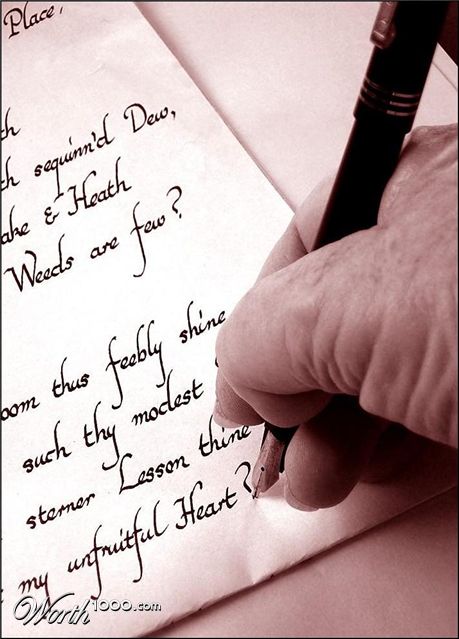 Place,
th
th sequinn'd Dew,
ake & Heath
Weeds are few?
oom thus feebly shine
such thy modest
sterner Lesson thine
my unfruitful Heart?
Worth1000.com